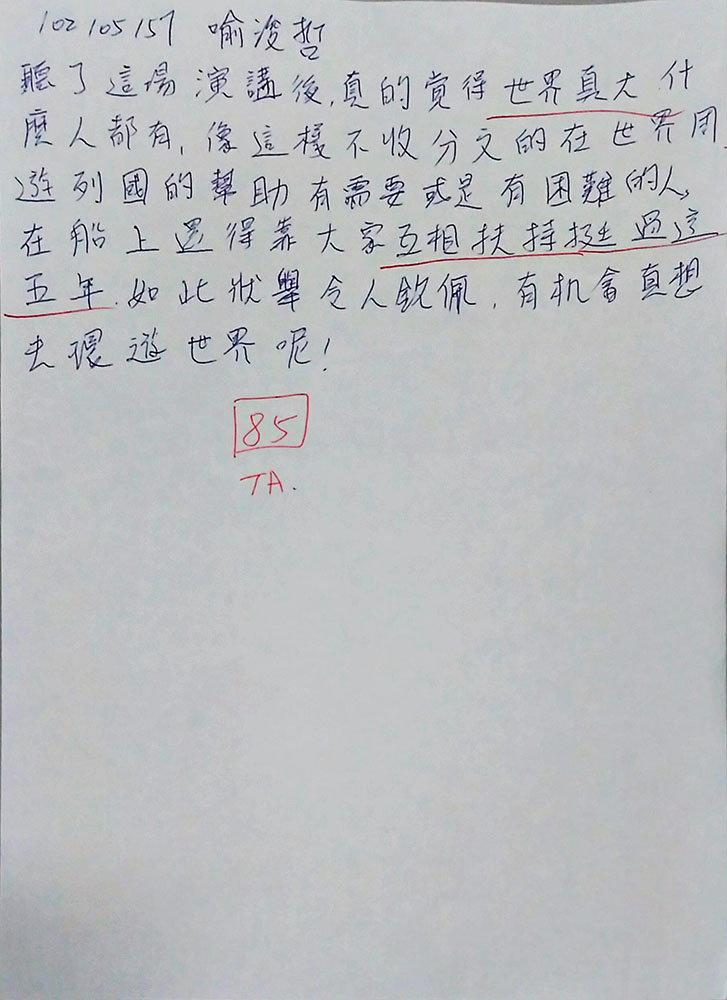 102105157 喻浚哲
聽了這場演講後,真的覚得世界真大.什
麼人都有,像這樣不收分文的在世界周
遊列國的幫助有需要或是有困難的人,
在船上還得靠大家互相扶持挺過這
五年.如此狀舉令人欽佩,有机會真想
去環遊世界呢!
85
TA.